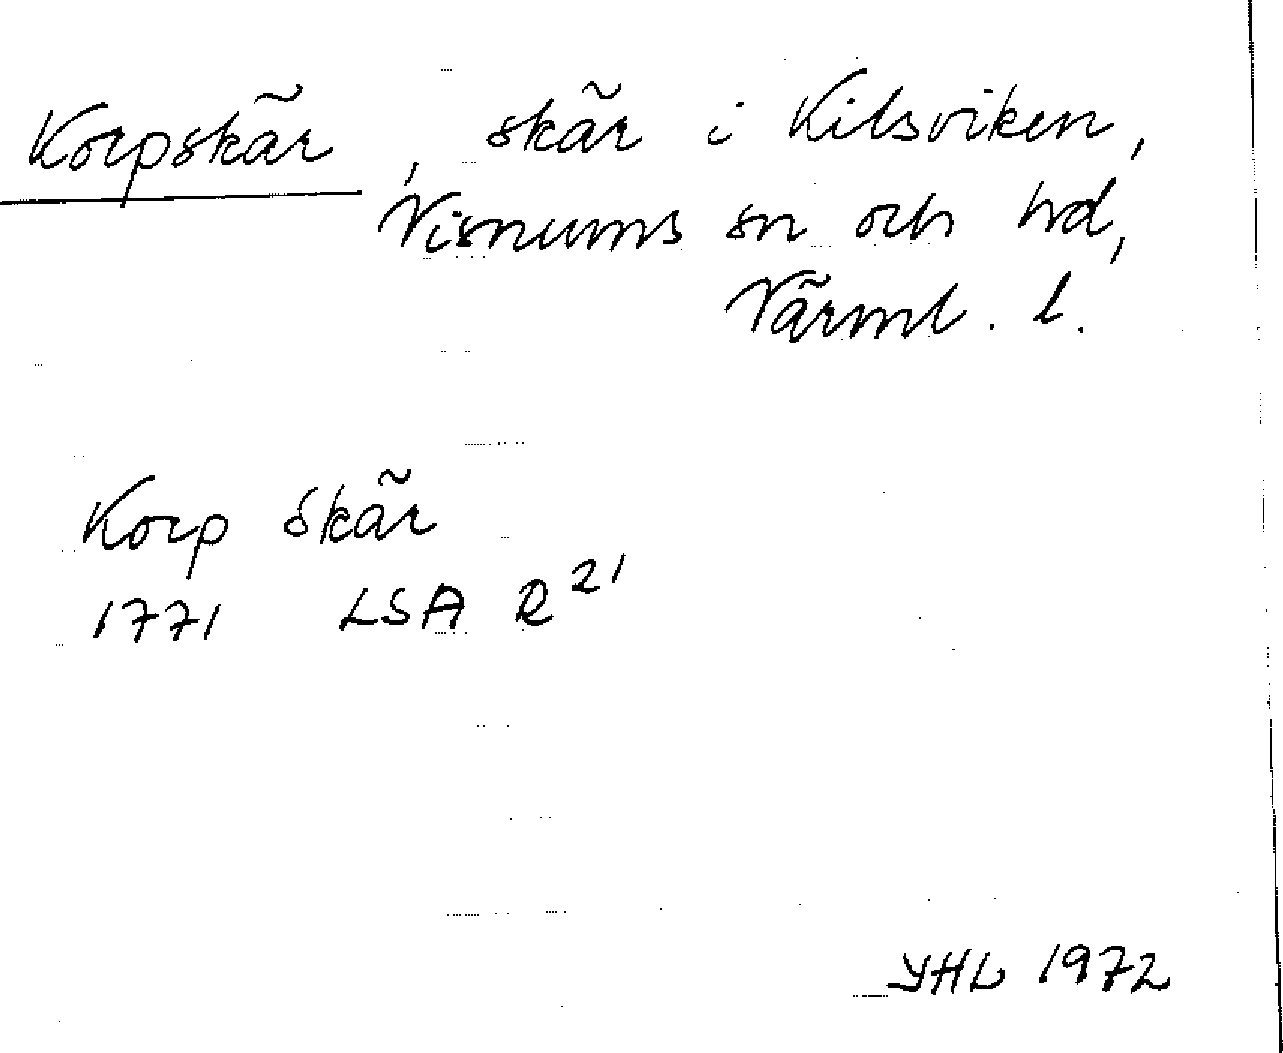 Korpskär, skär i Kilsviken,
Visnums sn och hd,
Värml. l.
Korp Skär
1771 LSA R 21
YHL 1972